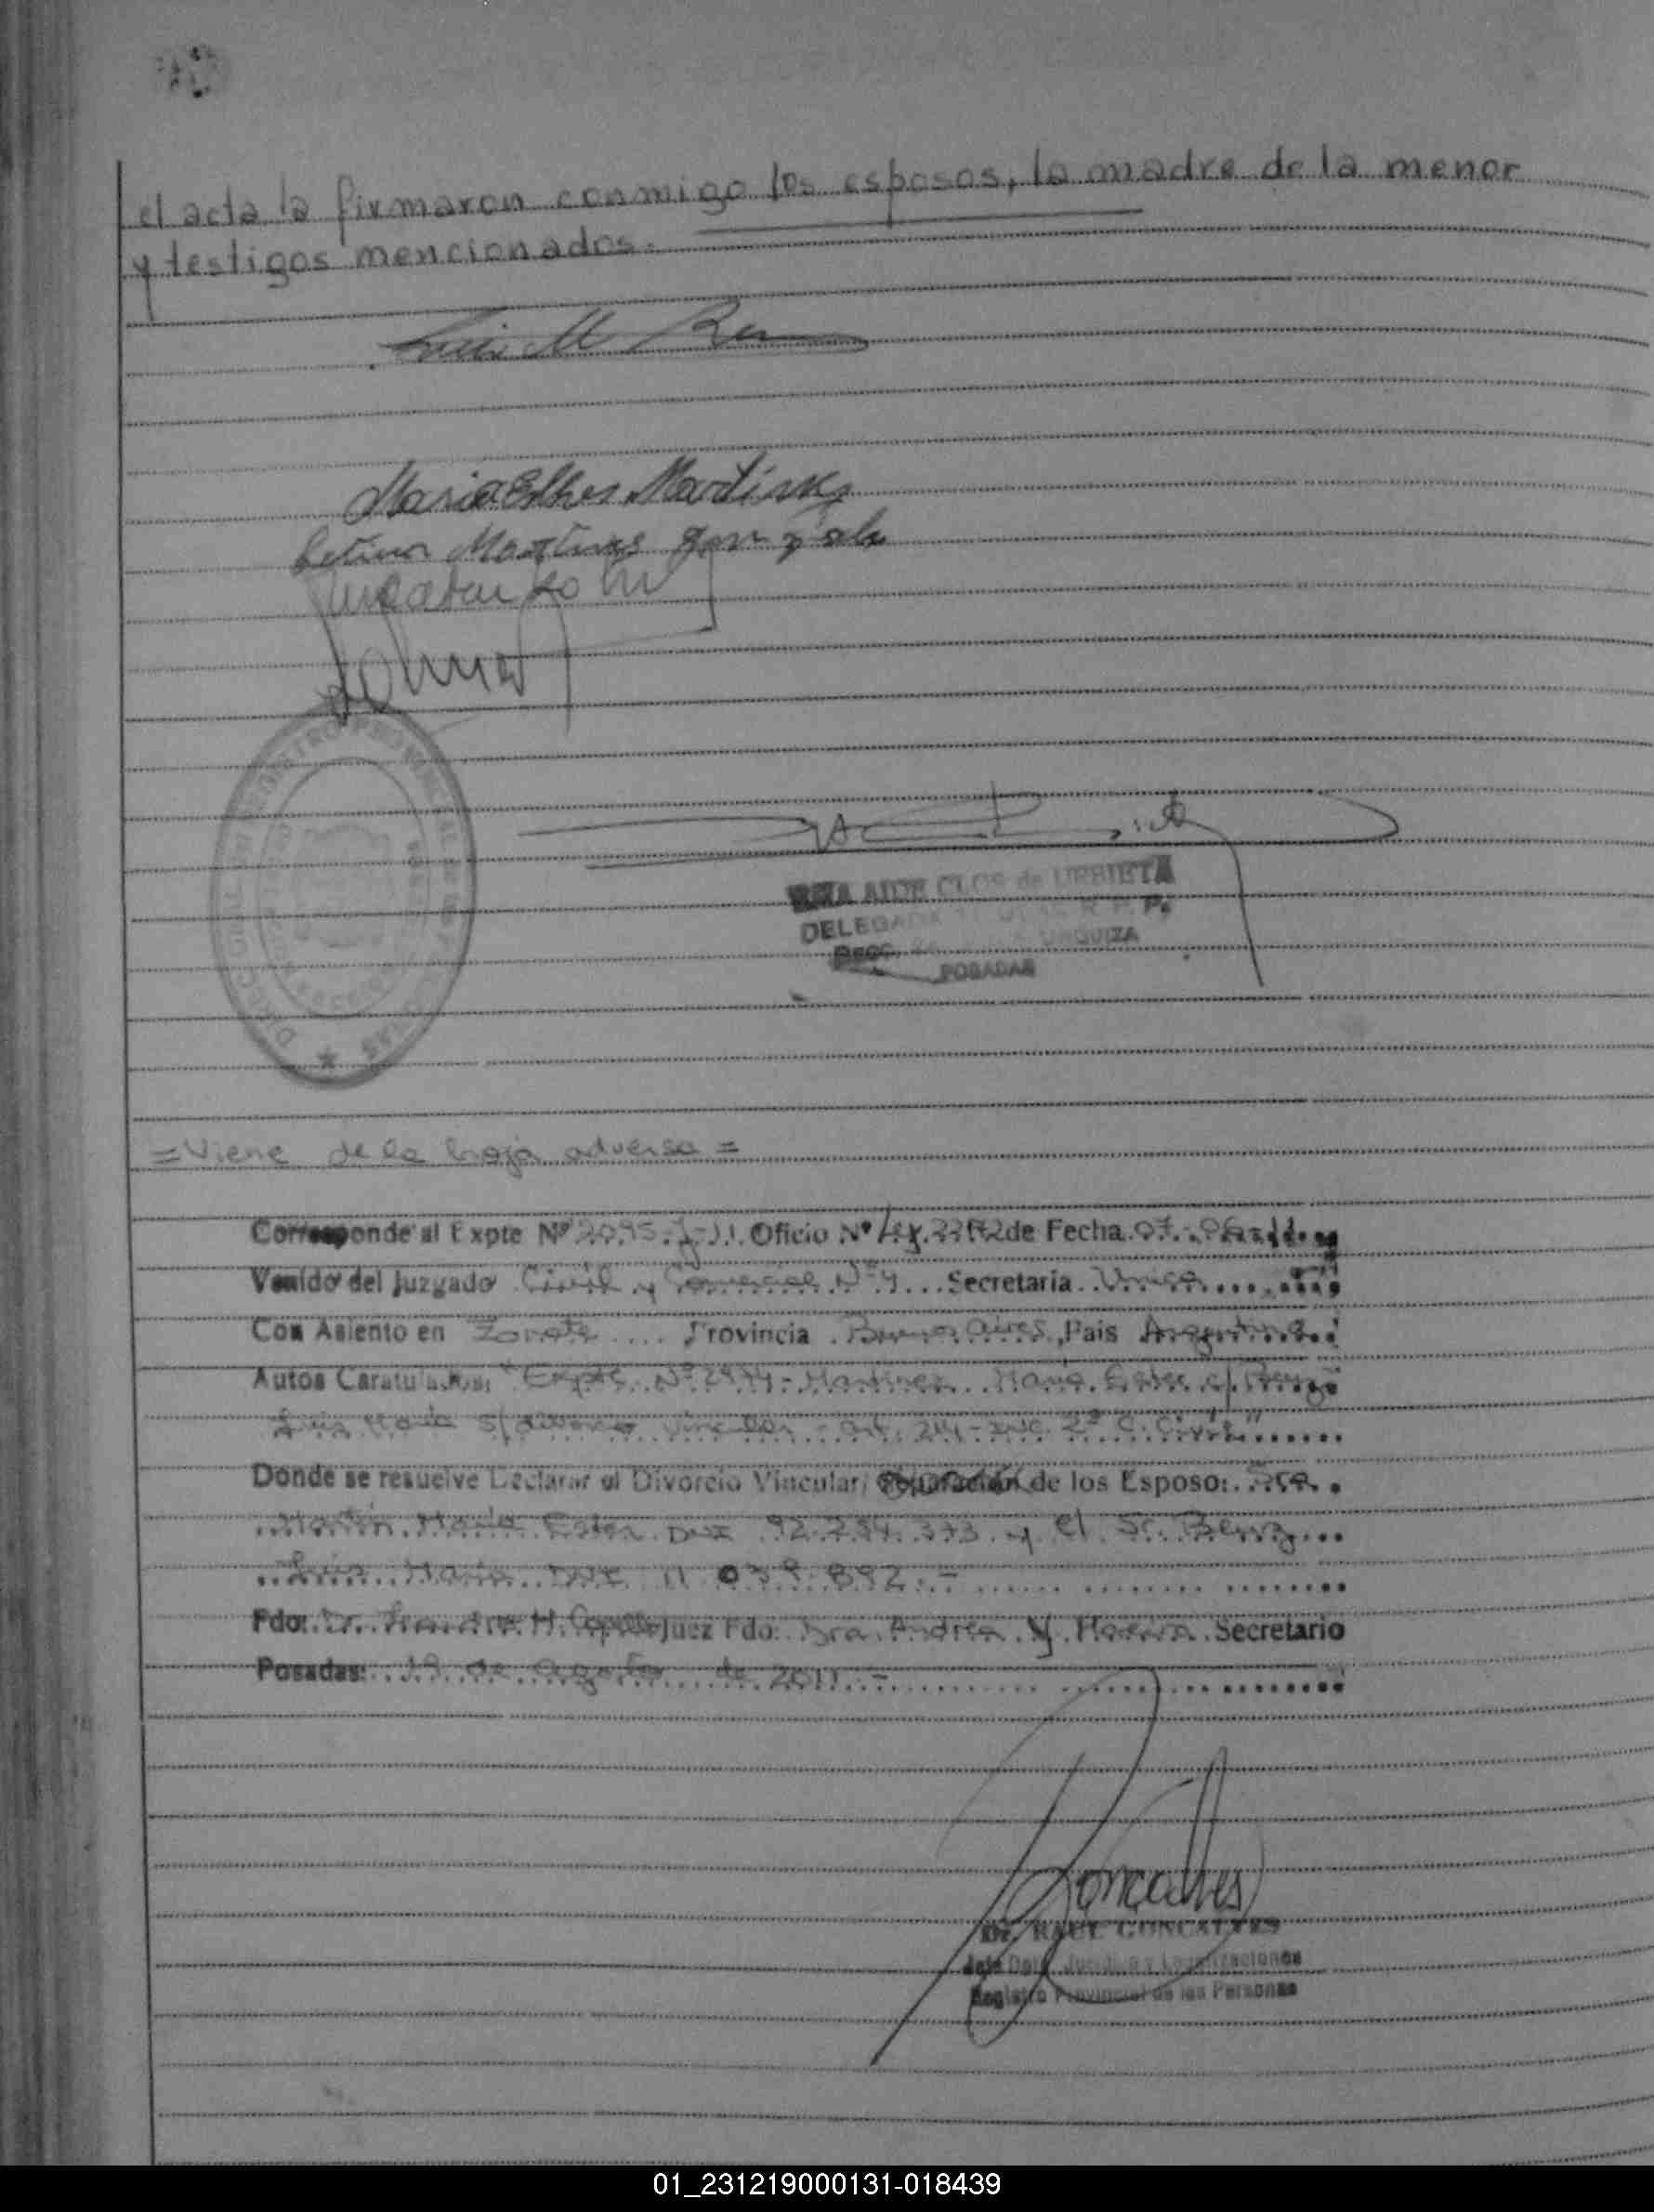 el acta la firmaron conmigo los esposos, la madre de la menor
y testigos mencionados.
Luis M
Maria Esther Martinez
Martines
REGISTRO PROVINCIAL DE LAS
AIDE CLOS de URRIETA
DELEGADA R. P. P.
URQUIZA
POSADAS
=Viene de la hoja adversa =
Corresponde al Expte Nº 2095-J-11. Oficio Nº Ley 22172 de Fecha 07-06-11
Venido del Juzgado Civil y Comercial Nº 4 Secretaria Unica
Con Asiento en Zarate Provincia Buenos Aires, Pais Argentina
Autos Caratulados: "Expte Nº 2974- Martinez Maria Ester c/
Luis Maria s/ divorcio vincular - art. 214- inc. 2º C. Civil"
Donde se resuelve Declarar el Divorcio Vincular/ Separación de los Esposo: Sra.
Maria Ester DNI 92.234.373 y el Sr.
Luis Maria DNI 11 039 892.-
Fdo: Dr. H. Juez Fdo: Dra. Andrea Y. Secretario
Posadas: 19 de agosto de 2011.-
Goncalves
Dr. RAUL GONCALVES
Jefe Dpto. Juridico y Legalizaciones
Registro Provincial de las Personas
01_231219000131-018439